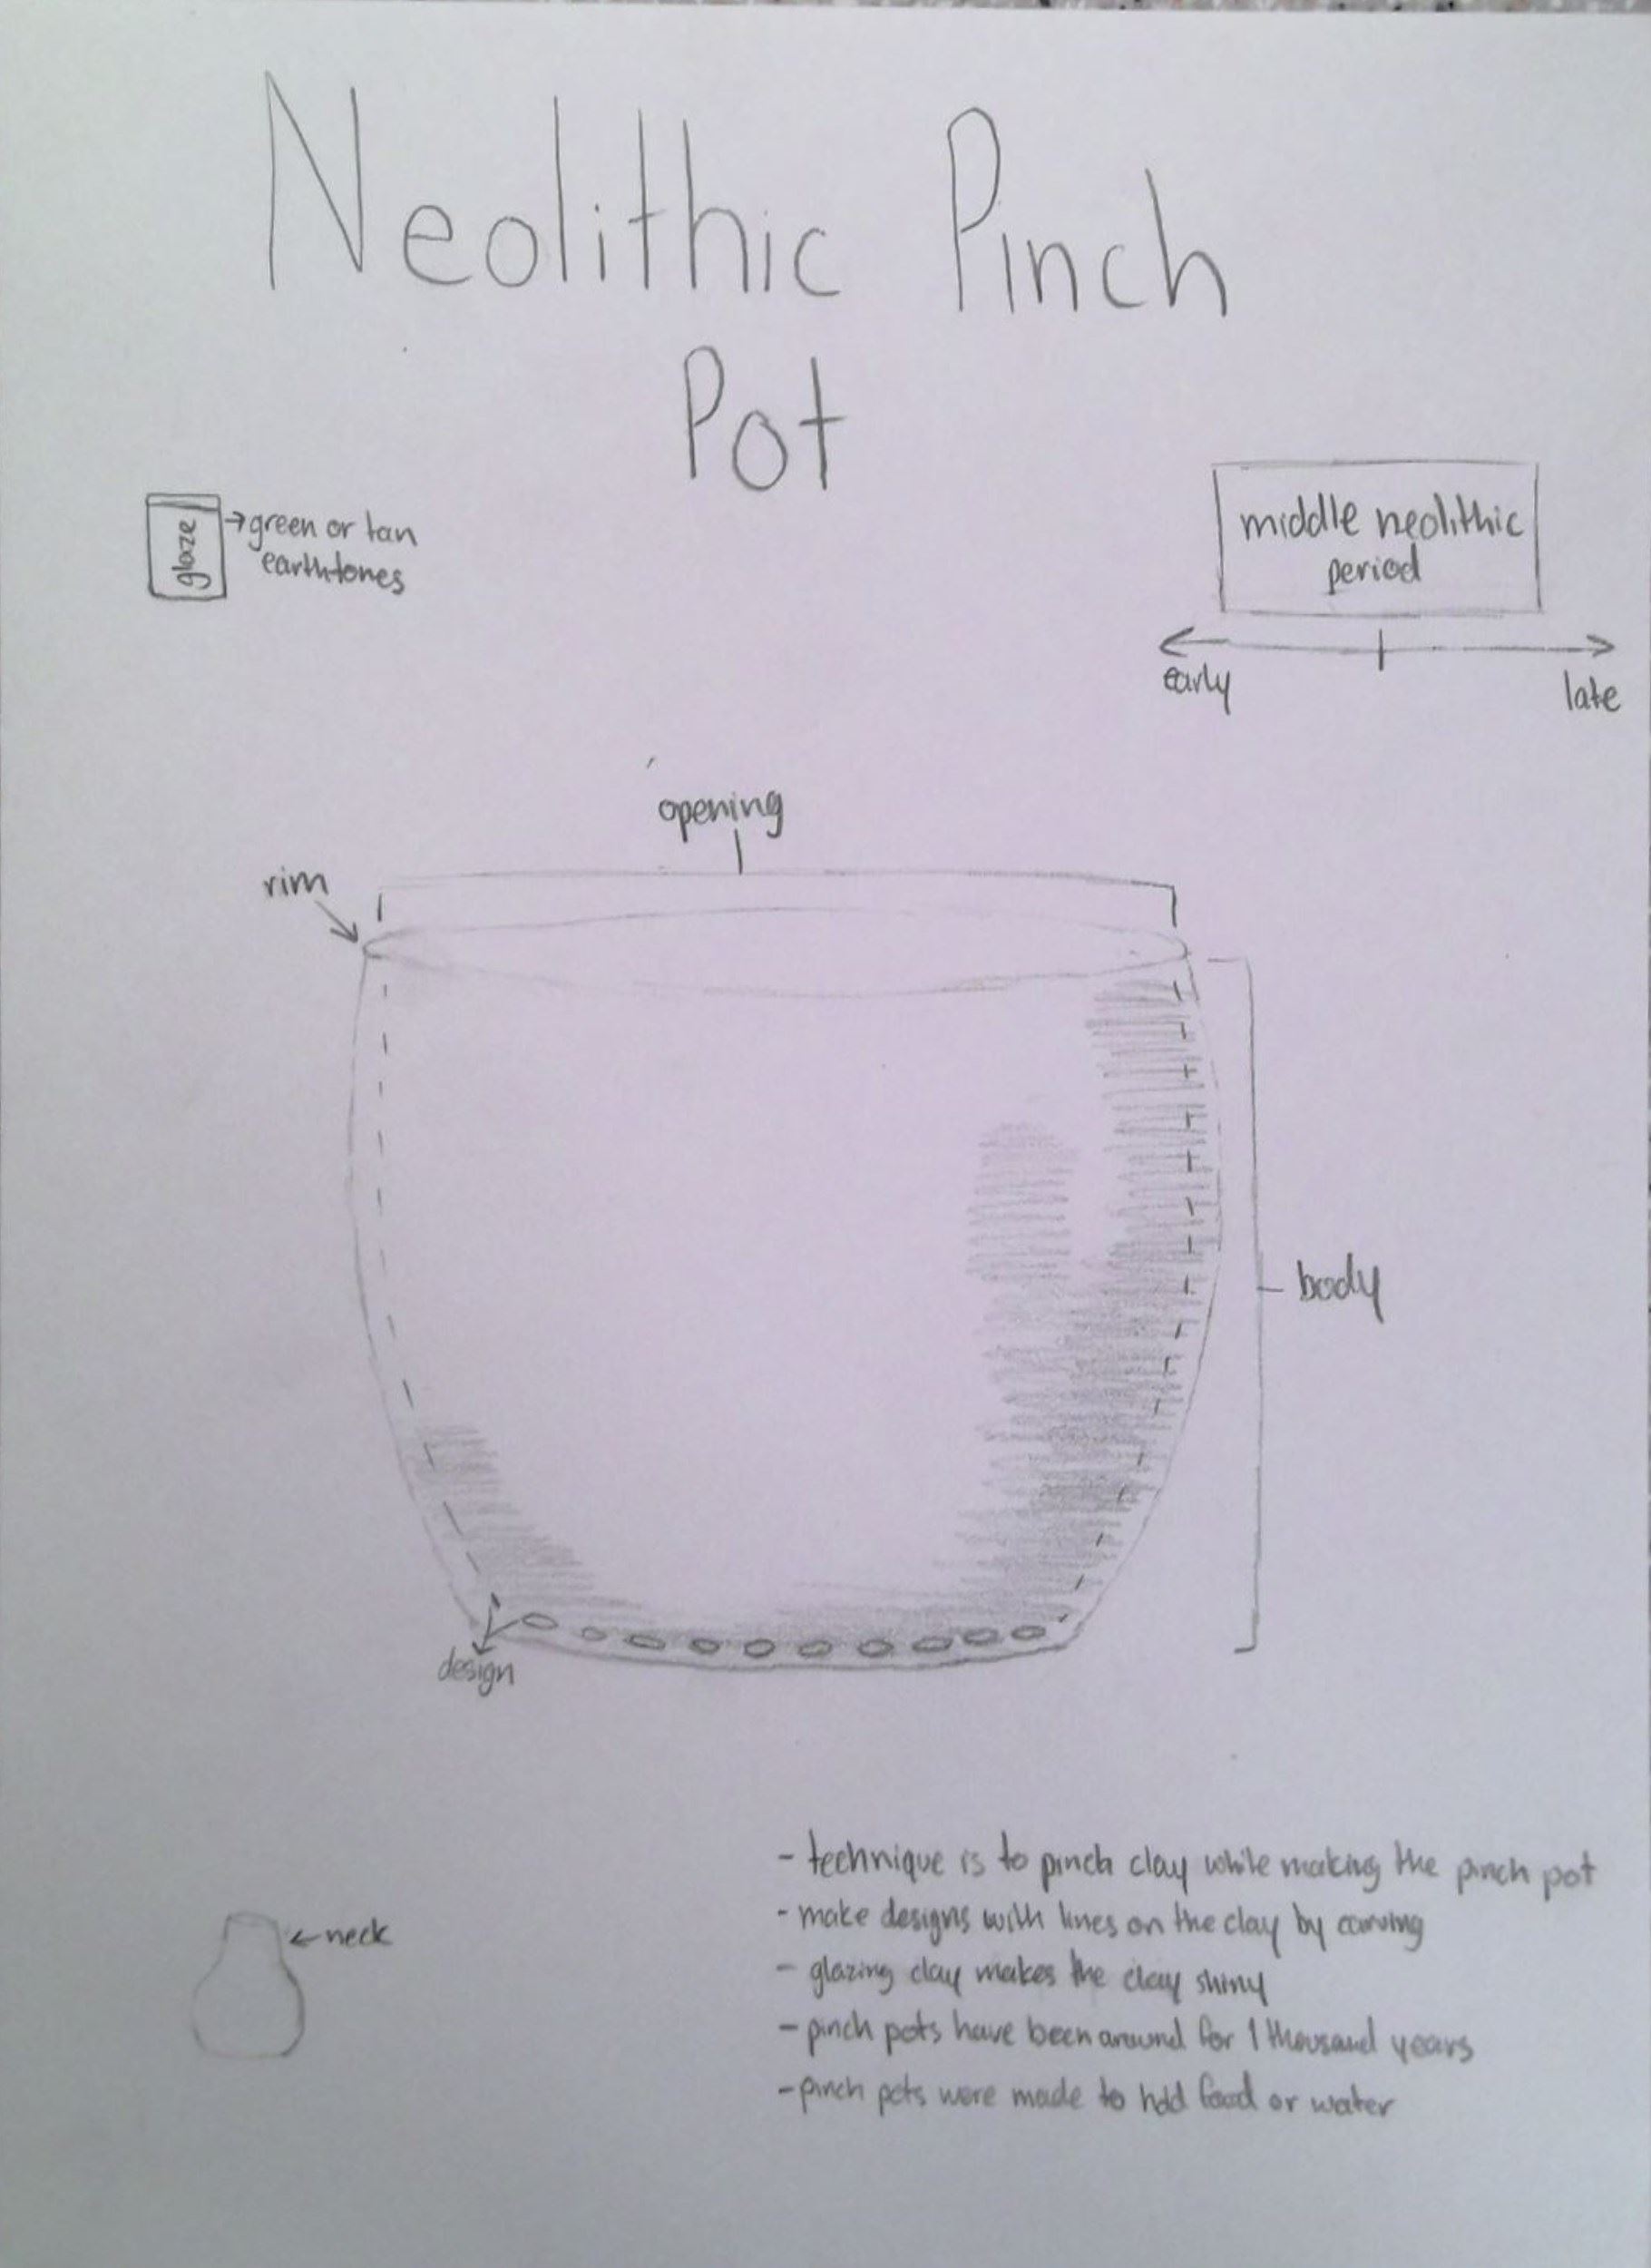 Neolithic Pinch
Pot
glaze
→green or tan
earthtones
middle neolithic
period
early
late
opening
rim
body
design
←neck
- technique is to pinch clay while making the pinch pot
- make designs with lines on the clay by carving
- glazing clay makes the clay shiny
- pinch pots have been around for 1 thousand years
- pinch pots were made to hold food or water